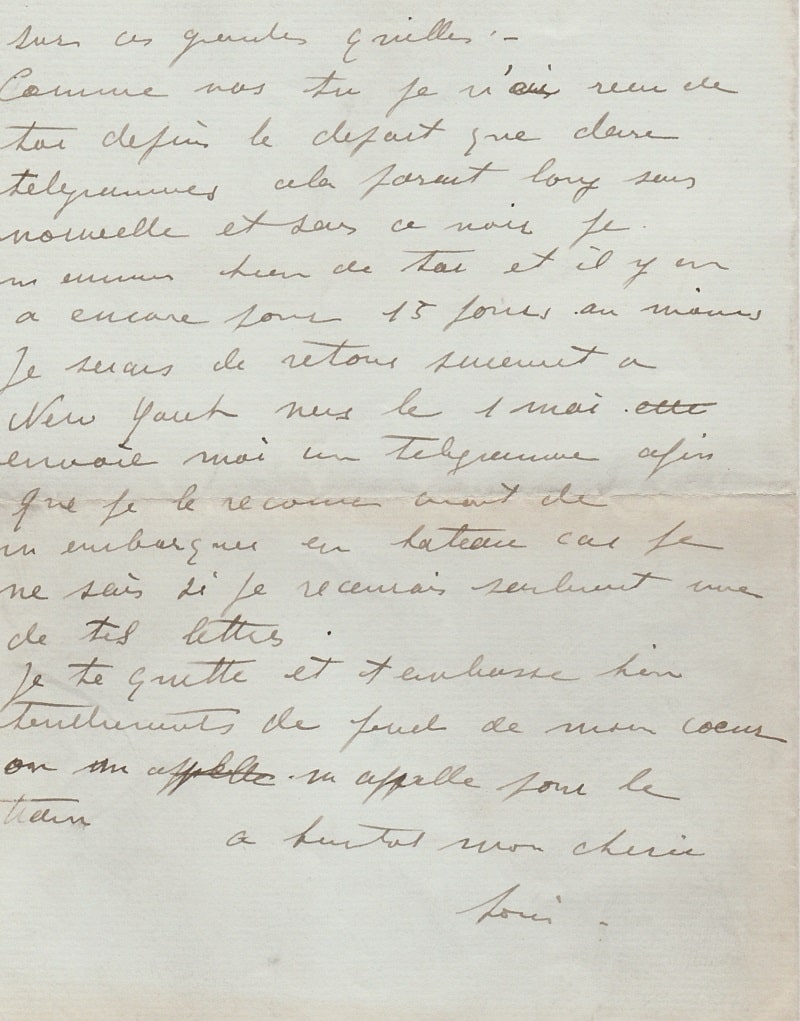 sur ces grandes quilles. -
Comme vas tu je n'ai recu de
toi depuis le depart que deux
telegrammes cela parait long sans
nouvelle et sais ce voir je
m ennui bien de toi et il y en
a encore pour 15 jours au moins
Je serais de retour surement a
New York vers le 1 mai
envoie moi un telegramme afin
que je le recoive avant de
m embarquer en bateau car je
ne sais si je recevrais seulement une
de tes lettres.
Je te quitte et t embrasse bien
tendrements de fond de mon coeur
on m appelle m appelle pour le
train
a bientot mon cherie
Louis -